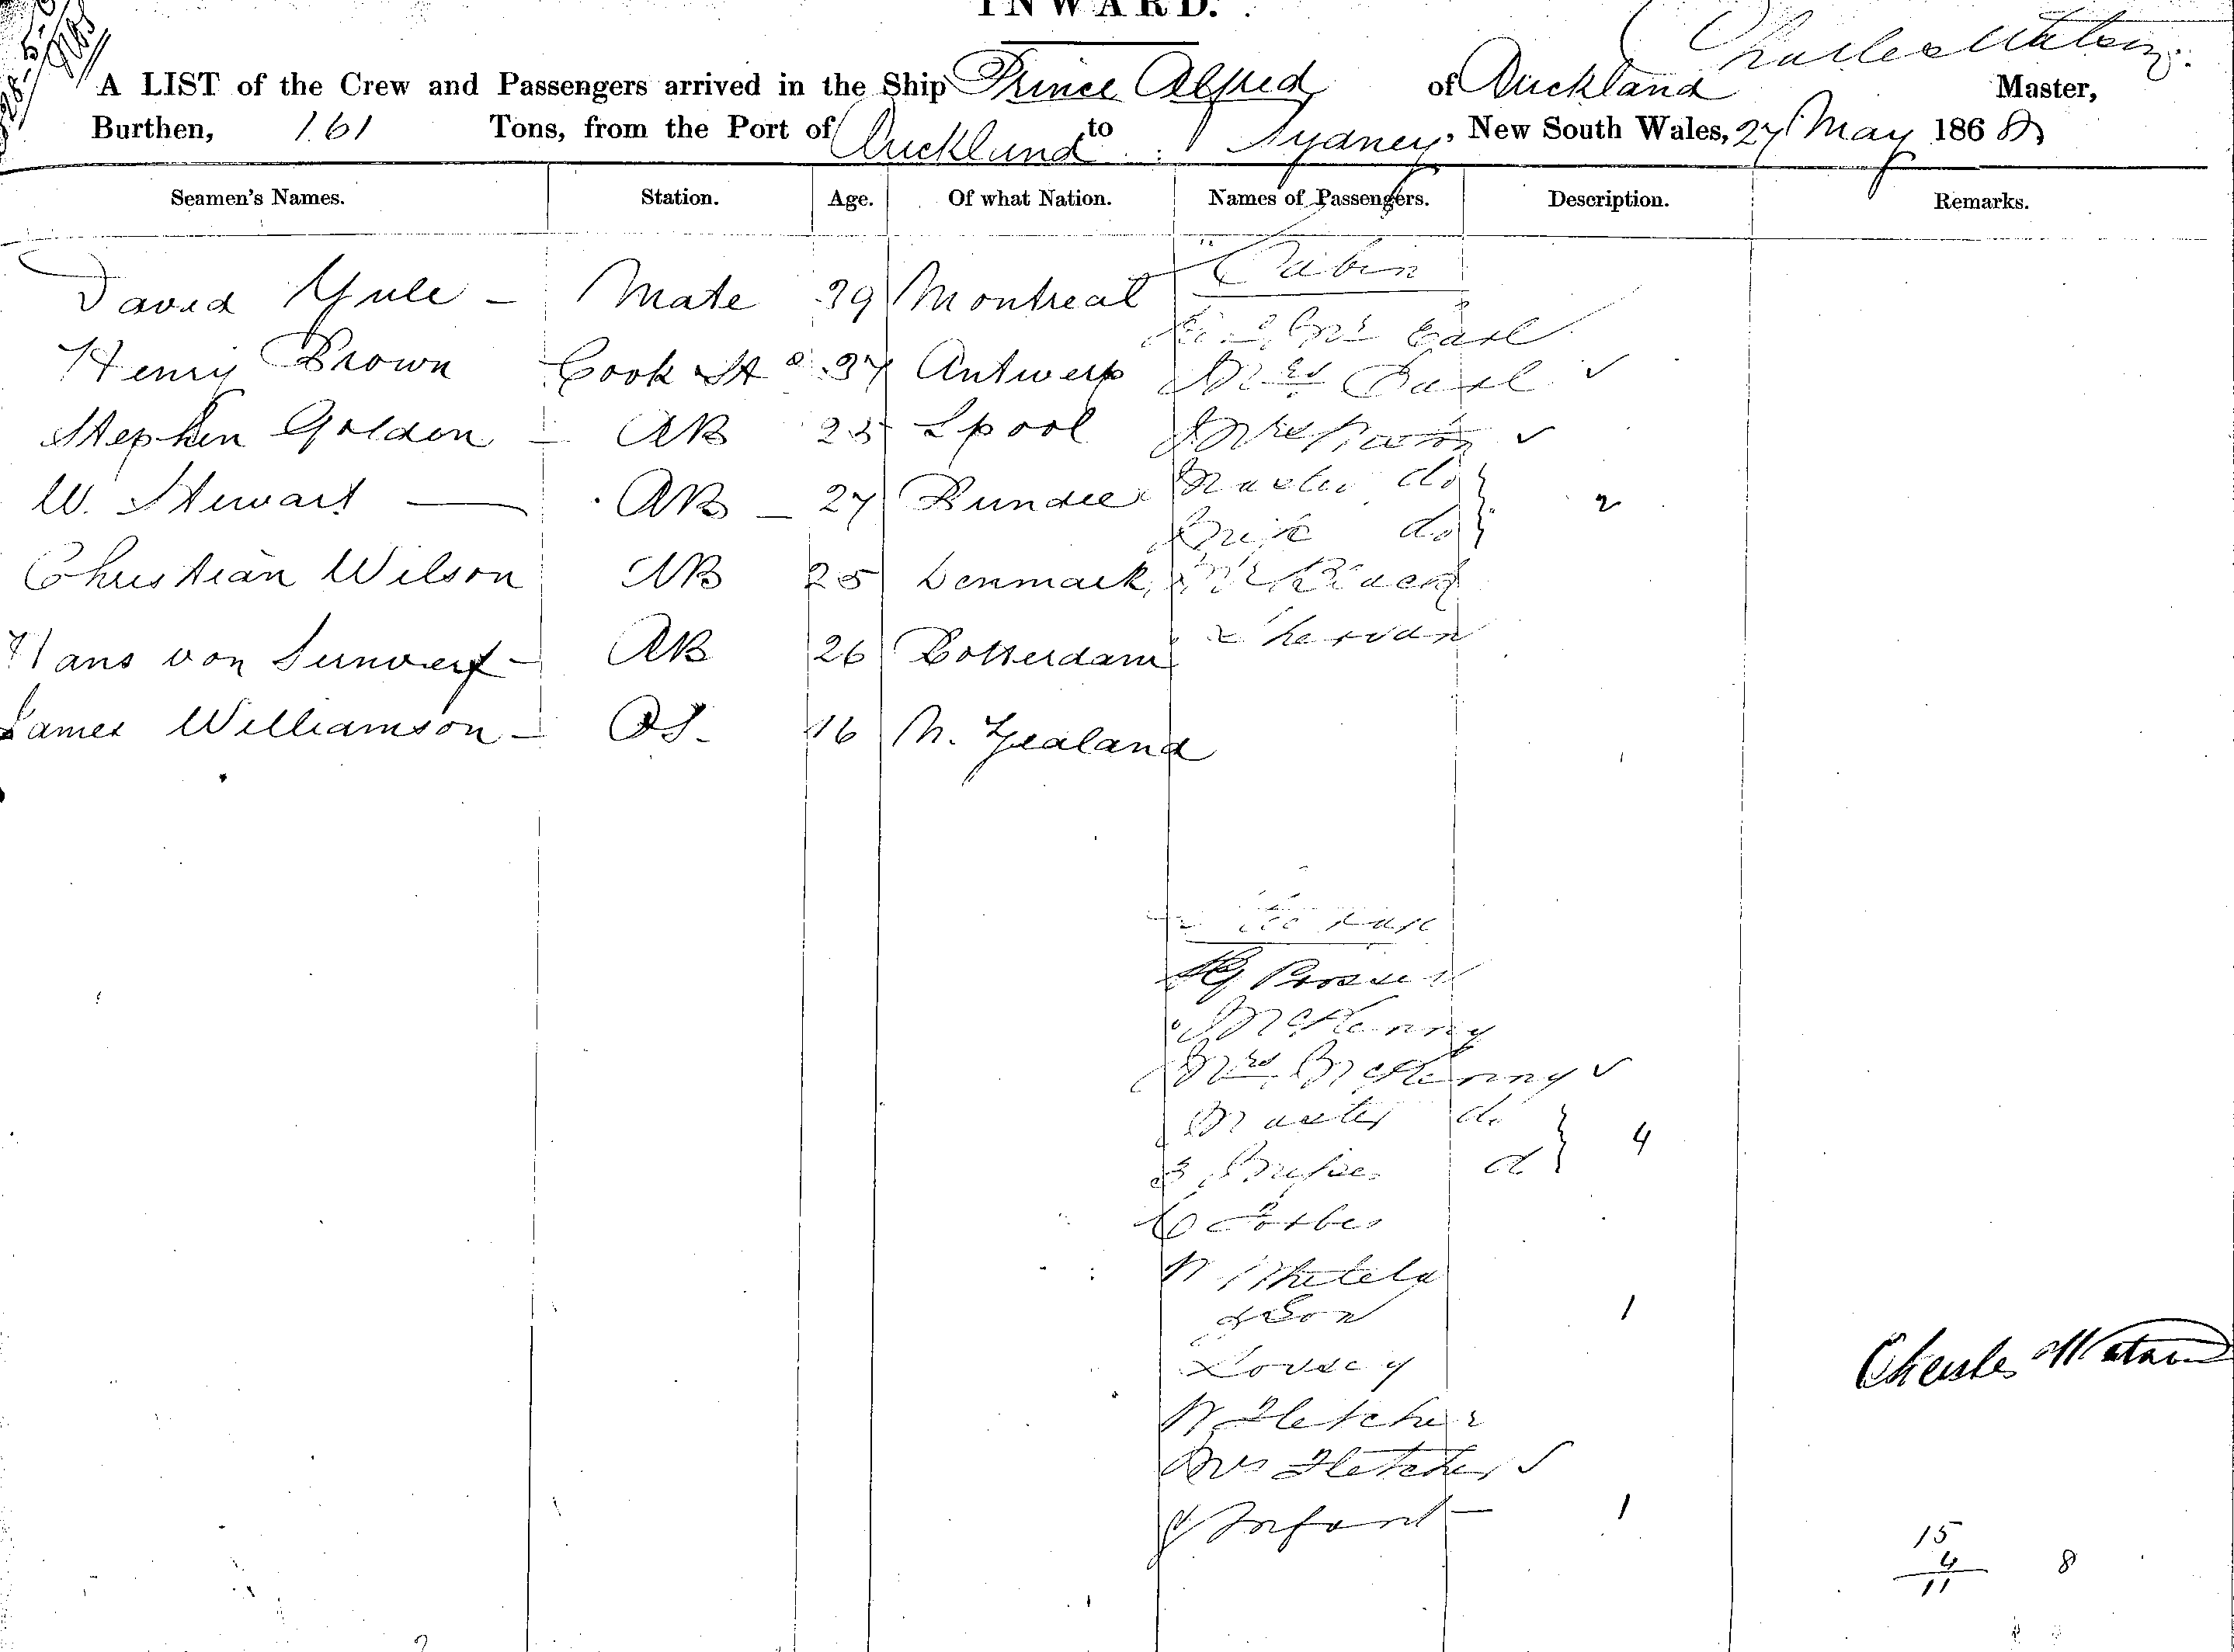 INWARD.
Charles Watson
A LIST of the Crew and Passengers arrived in the Ship Prince Alfred of Auckland Master,
Burthen, 161 Tons, from the Port of Auckland to Sydney, New South Wales, 27 May 1868
Seamen's Names. Station. Age. Of what Nation. Names of Passengers. Description. Remarks.
Cabin
David Yule - Mate 39 Montreal
Earl
Henry Brown Cook & St d 37 Antwerp Mrs Earl ✓
Stephen Golden - AB 25 Lpool Mrs ✓
W. Stewart - AB - 27 Dundee Master do } 2
do
Christian Wilson AB 25 Denmark Mr Black
Hans von AB 26 Rotterdam
James Williamson - OS - 16 N. Zealand
Prosser
McKenny
Mrs McKenny ✓
Master do } 4
3 Misses d
C Forbes
& Son 1
W Fletcher
Mrs Fletcher ✓
& Infant - 1
Charles Watson
15
4 8
11